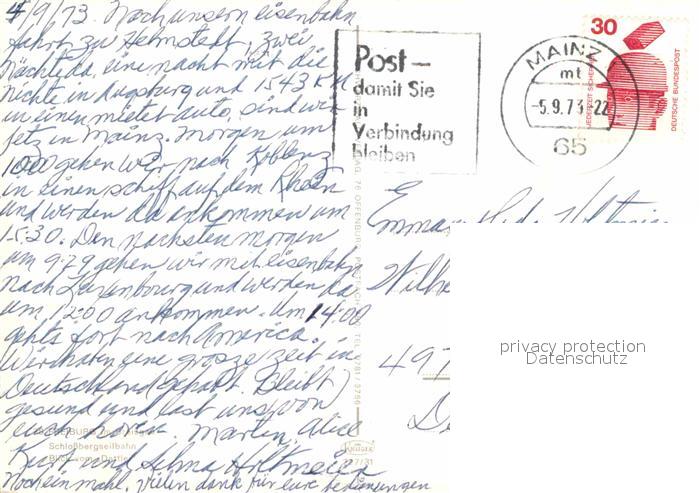 4/9/73. Nach unsern eisenbahn
fahrt zu Helmstedt, zwei
nächte da, eine nacht mit die
nichte in Augsburg und 1543 KM
in einen mietet auto, sind wir
jetz in Mainz. Morgen um
1000 gehen wir nach Koblenz
in einen schiff auf dem Rhein
und werden da ankommen um
15:30. Den nachsten morgen
um 9:29 gehen wir mit eisenbahn
nach Luxenbourg und werden da
um 12:00 ankommen. Um 14:00
gehts fort nach America.
Wir haben eine grosze zeit in
Deutschland gehabt. Bleibt
gesund und last uns von
euch hören. Martin, Alice
Kurt und Selma Holtmeier
Noch ein mahl, vielen dank für eure bemühungen
Schloßbergseilbahn
Post –
damit Sie
in
Verbindung
bleiben
MAINZ
mt
-5.9.73-22
65
30
JEDERZEIT SICHERHEIT
DEUTSCHE BUNDESPOST
76 OFFENBURG
Emma
Wilhe
497
D
KRÜGER
privacy protection
Datenschutz